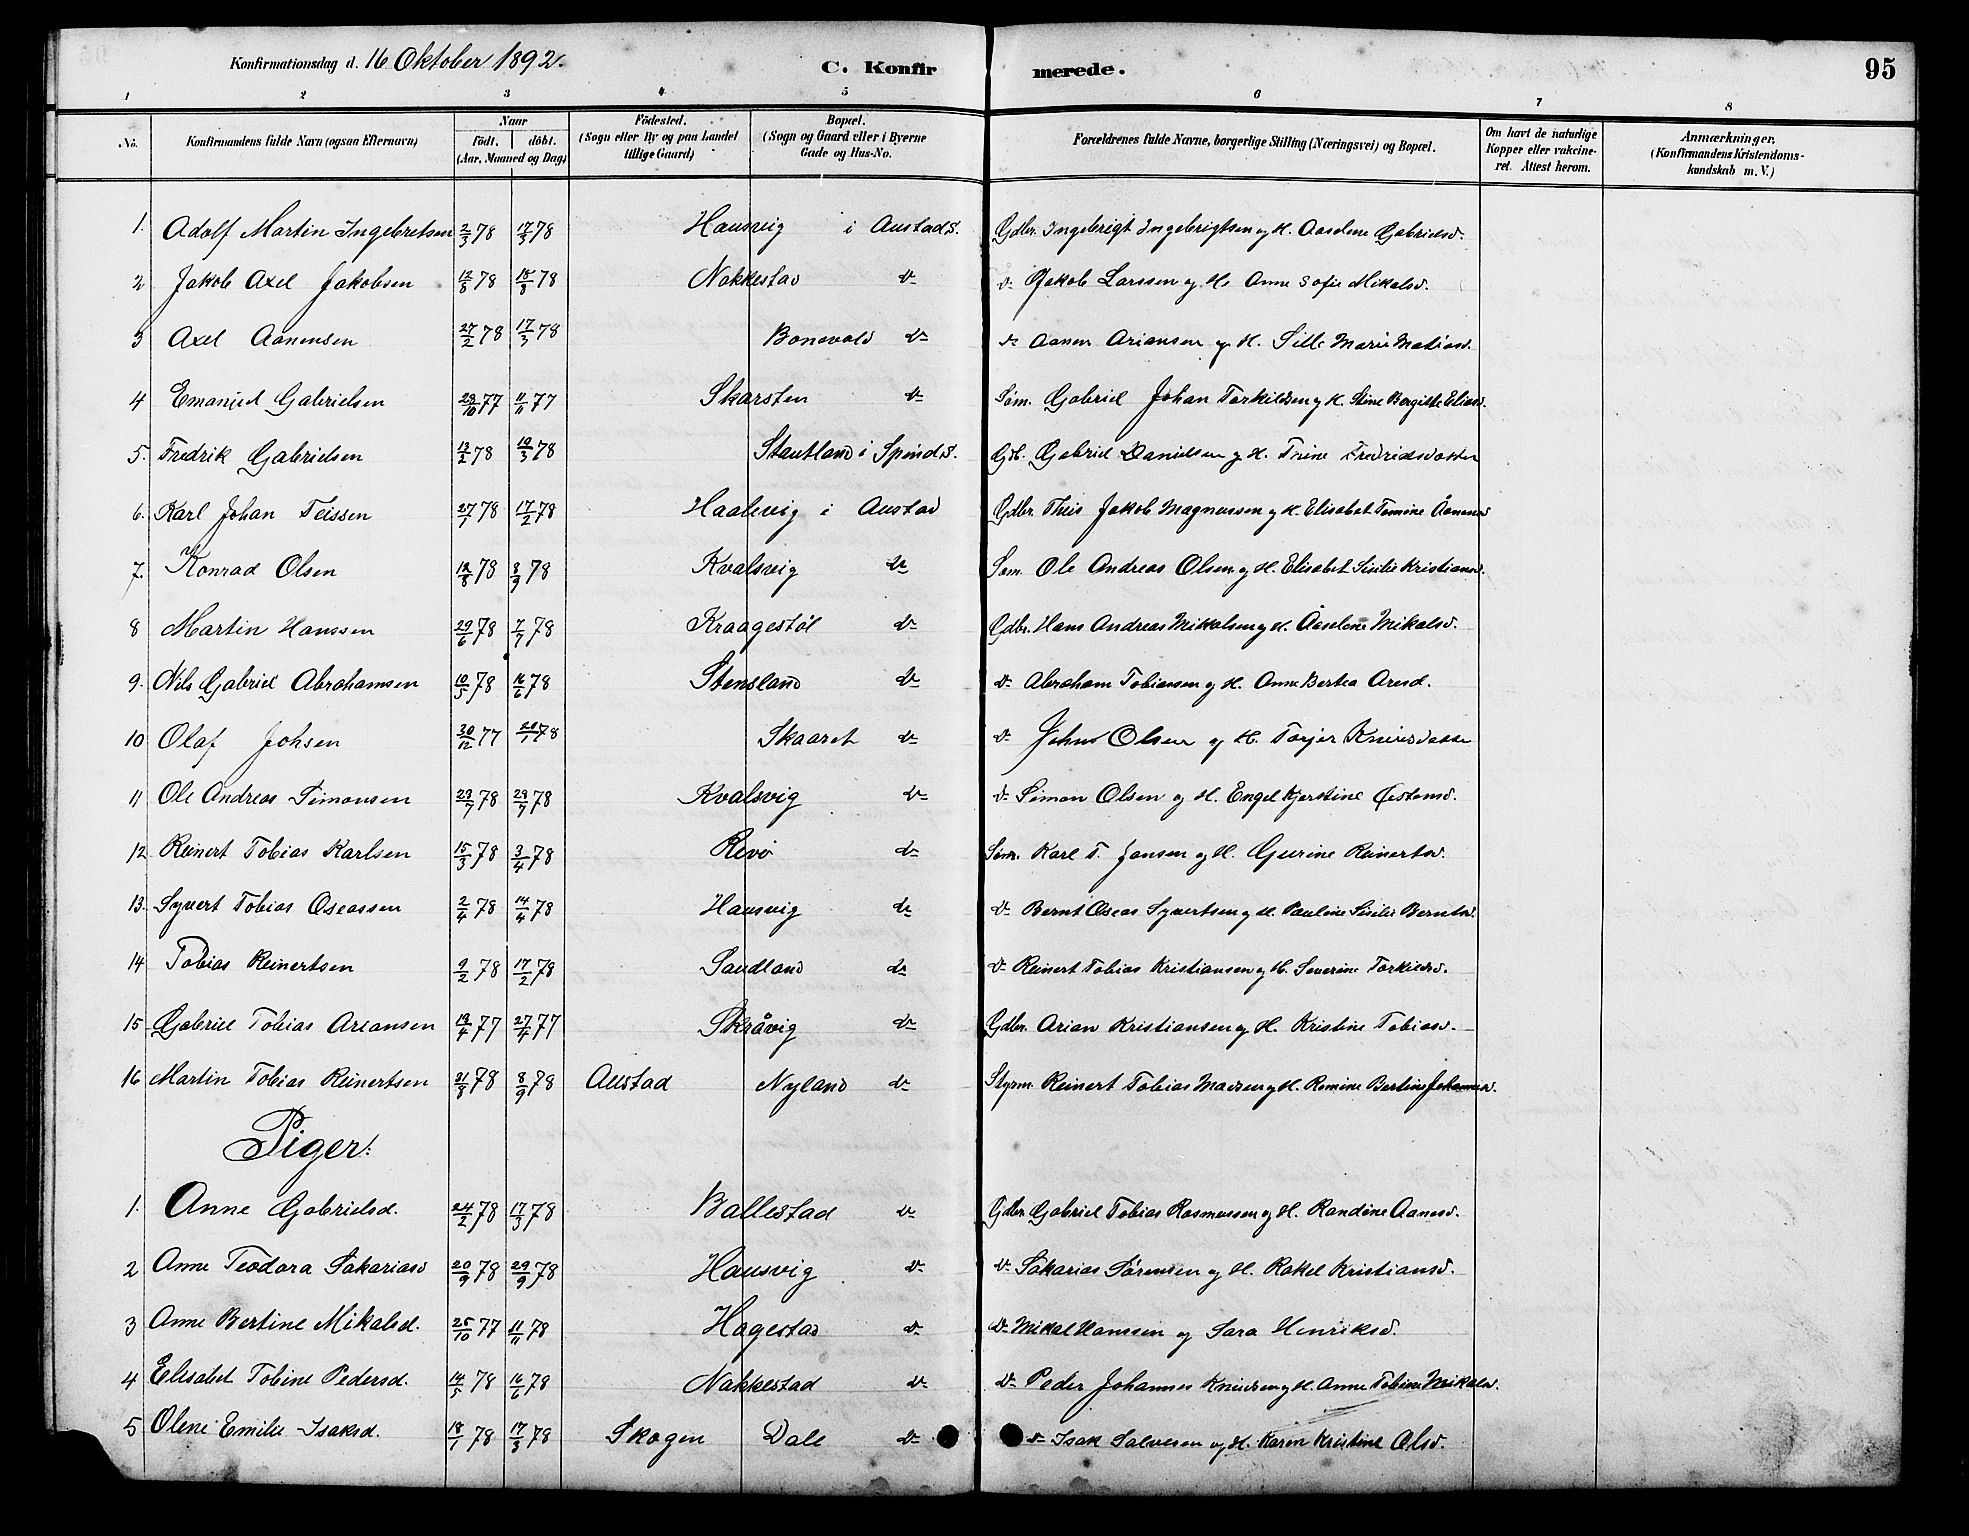 Konfirmationsdag d. 16 Oktober 1892. C. Konfirmerede. 95
1 2 3 4 5 6 7 8
No. Konfirmandens fulde Navn (ogsaa Efternavn) Naar födt. döbt. (Aar, Maaned og Dag) Födested. (Sogn eller By og paa Landet tillige Gaard) Bopæl. (Sogn og Gaard eller i Byerne Gade og Hus-No. Forældrenes fulde Navne, borgerlige Stilling (Næringsvei) og Bopæl. Om havt de naturlige Kopper eller vakcineret. Attest herom. Anmærkninger. (Konfirmandens Kristendomskundskab m. V.)
1. Adolf Martin Ingebretsen 2/3 78 17/3 78 Hausvig i Austad S. Gdbr. Ingebrigt Ingebrigtsen og H. Aaselene Gabrielsd.
2 Jakob Axel Jakobsen 12/8 78 18/8 78 Nakkestad do Jakob Larssen og H. Anne Sofie Mikalsd.
3 Axel Aanensen 27/2 78 17/3 78 Bonevald do Aanen Ariansen og H. Sille Marie Matiasd.
4 Emanuel Gabrielsen 29/10 77 11/11 77 Skarsten do Søm. Gabriel Johan Torkildsen og H. Stine Bergitte Eliasd.
5. Fredrik Gabrielsen 13/2 78 10/3 78 Stautland i Spind S. Gdb. Gabriel Danielsen og H. Trine Fredriksdatter
6. Karl Johan Teissen 27/1 78 17/2 78 Haalevig i Austad Gdbr. Theis Jakob Magnussen og H. Elisabet Tomine Aanensd
7. Konrad Olsen 12/8 78 8/9 78 Kvalsvig do Søm Ole Andreas Olsen og H. Elisabet Sisilie Kristiansd.
8 Martin Hanssen 29/6 78 7/7 78 Kraagestøl do Gdbr. Hans Andreas Mikkalsen og H. Åselene Mikalsd.
9. Nils Gabriel Abrahamsen 10/5 78 16/6 78 Stensland do Abraham Tobiassen og H. Anne Bertea Aresd.
10 Olaf Johsen 30/12 77 20/1 78 Skaaret do Johns Olsen og H. Torjer Knudsdatter
11 Ole Andreas Simonsen 23/7 78 29/7 78 Kvalsvig do Simon Olsen og H. Engel Kjerstine Øistensd.
12 Reinert Tobias Karlsen 15/3 78 3/4 78 Revø do Søm. Karl T. Jansen og H. Gurine Reinertsd.
13. Syvert Tobias Oseassen 2/4 78 14/4 78 Hausvig do Bernt Oseas Syvertsen og H. Pauline Sisilie Berntsd.
14 Tobias Reinertsen 9/2 78 17/2 78 Sandland do Reinert Tobias Kristiansen og H. Severine Torkildsd.
15 Gabriel Tobias Areansen 19/4 77 27/4 77 Skråvig do Gdbr. Arian Kristiansen og H. Kristine Tobiasd.
16 Martin Tobias Reinertsen 21/8 78 8/9 78 Austad Nyland do Styrm. Reinert Tobias Madsen og H. Romine Bertine Johannesd.
Piger:
1. Anne Gabrielsd. 24/2 78 17/3 78 Ballestad do Gdbr. Gabriel Tobias Rasmussen og H. Randine Aanesd.
2 Anne Teodora Sakariasd 20/9 78 29/9 78 Hausvig do Sakarias Sørensen og H. Rakel Kristiansd.
3 Anne Bertine Mikalsd. 25/10 77 11/11 78 Hagestad do Mikal Hanssen og Sara Henriksd.
4 Elisabet Tobine Pedersd. 14/5 78 16/6 78 Nakkestad do Peder Johannes Knudsen og H. Anne Tobine Mikalsd.
5 Olene Emilie Isaksd. 18/1 78 17/3 78 Skogen Dale do Isak Salvesen og H. Karen Kristine Olsd.